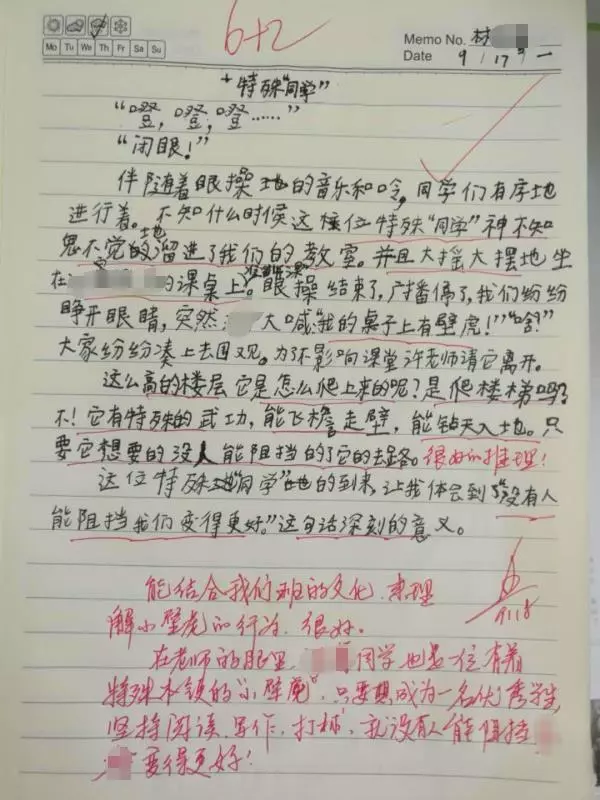 6+2
Memo No. 林
Mo Tu We Th Fr Sa Su
Date 9/17 一
特殊“同学”
“噔,噔,噔……”
“闭眼!”
伴随着眼操的音乐和口令,同学们有序地
进行着。不知什么时候这位特殊“同学”神不知
鬼不觉地溜进了我们的教室。并且大摇大摆地坐
在 的课桌上。眼操结束了,广播停了,我们纷纷
睁开眼睛,突然 大喊“我的桌子上有壁虎!”“啥?”
大家纷纷凑上去围观。为了不影响课堂许老师请它离开。
这么高的楼层它是怎么爬上来的呢?是爬楼梯吗?
不!它有特殊的武功,能飞檐走壁,能钻天入地。只
要它想要的没人能阻挡的了它的去路。很好的推理!
这位特殊“同学”的到来,让我体会到了“没有人
能阻挡我们变得更好。”这句话深刻的意义。
能结合我们班的文化,来理
解小壁虎的行为,很好。
9.18
在老师的眼里, 同学也是一位有着
特殊本领的“小壁虎”,只要想成为一名优秀学生,
坚持阅读、写作、打卡,就没有人能阻挡
变得更好!